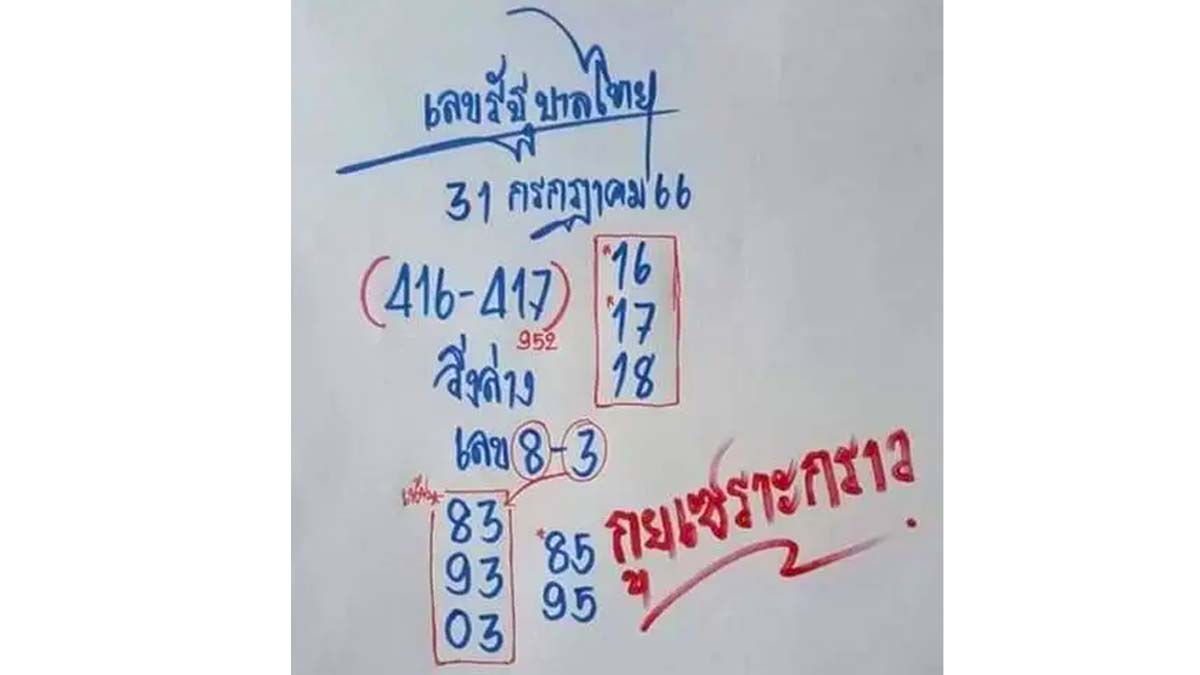 เลขรัฐบาลไทย
31 กรกฎาคม 66
(416-417)
952
*16
*17
18
วิ่งล่าง
เลข 8-3
83
93
03
*85
95
กูยเซราะกราว